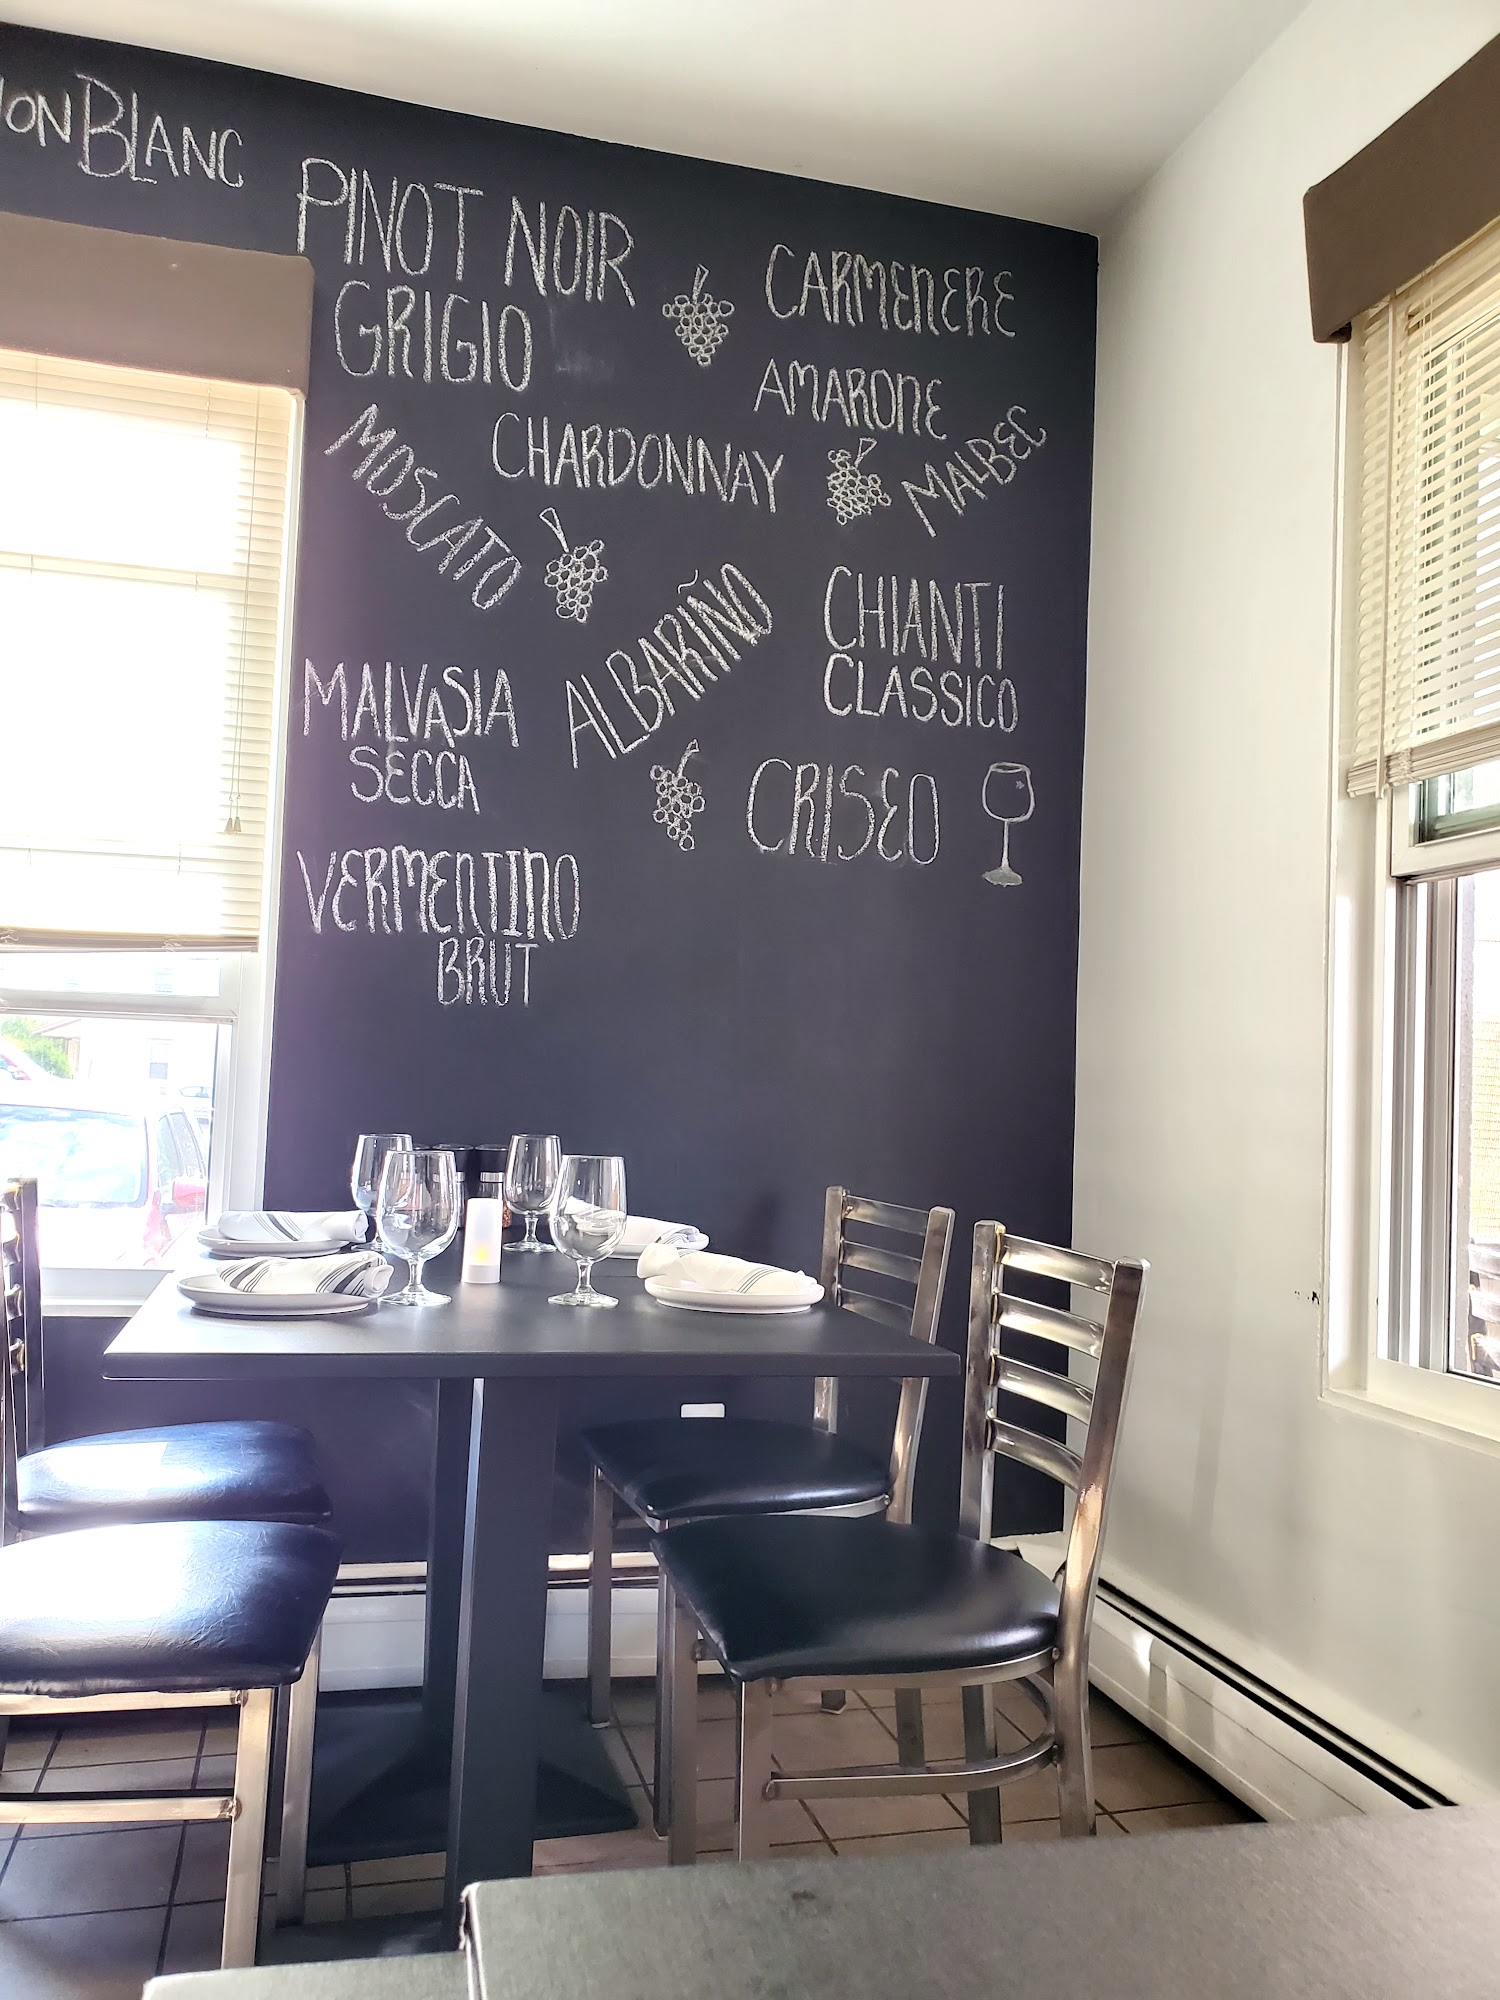 BLANC
PINOT NOIR
GRIGIO
CARMENERE
AMARONE
MALBEC
CHARDONNAY
MOSCATO
ALBARIÑO
CHIANTI
CLASSICO
MALVASIA
SECCA
CRISEO
VERMENTINO
BRUT